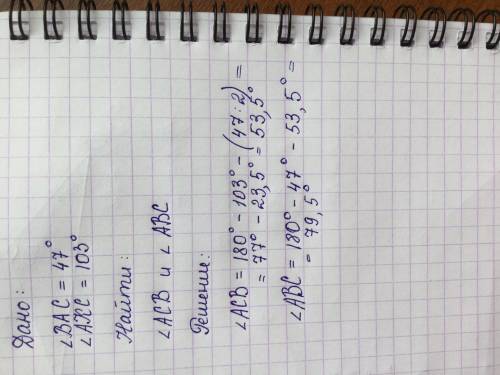 Дано:
∠BAC = 47°
∠AXC = 103°
Найти:
∠ACB и ∠ABC
Решение:
∠ACB = 180° - 103° - (47:2) =
= 77° - 23,5° = 53,5°
∠ABC = 180° - 47° - 53,5° =
= 79,5°